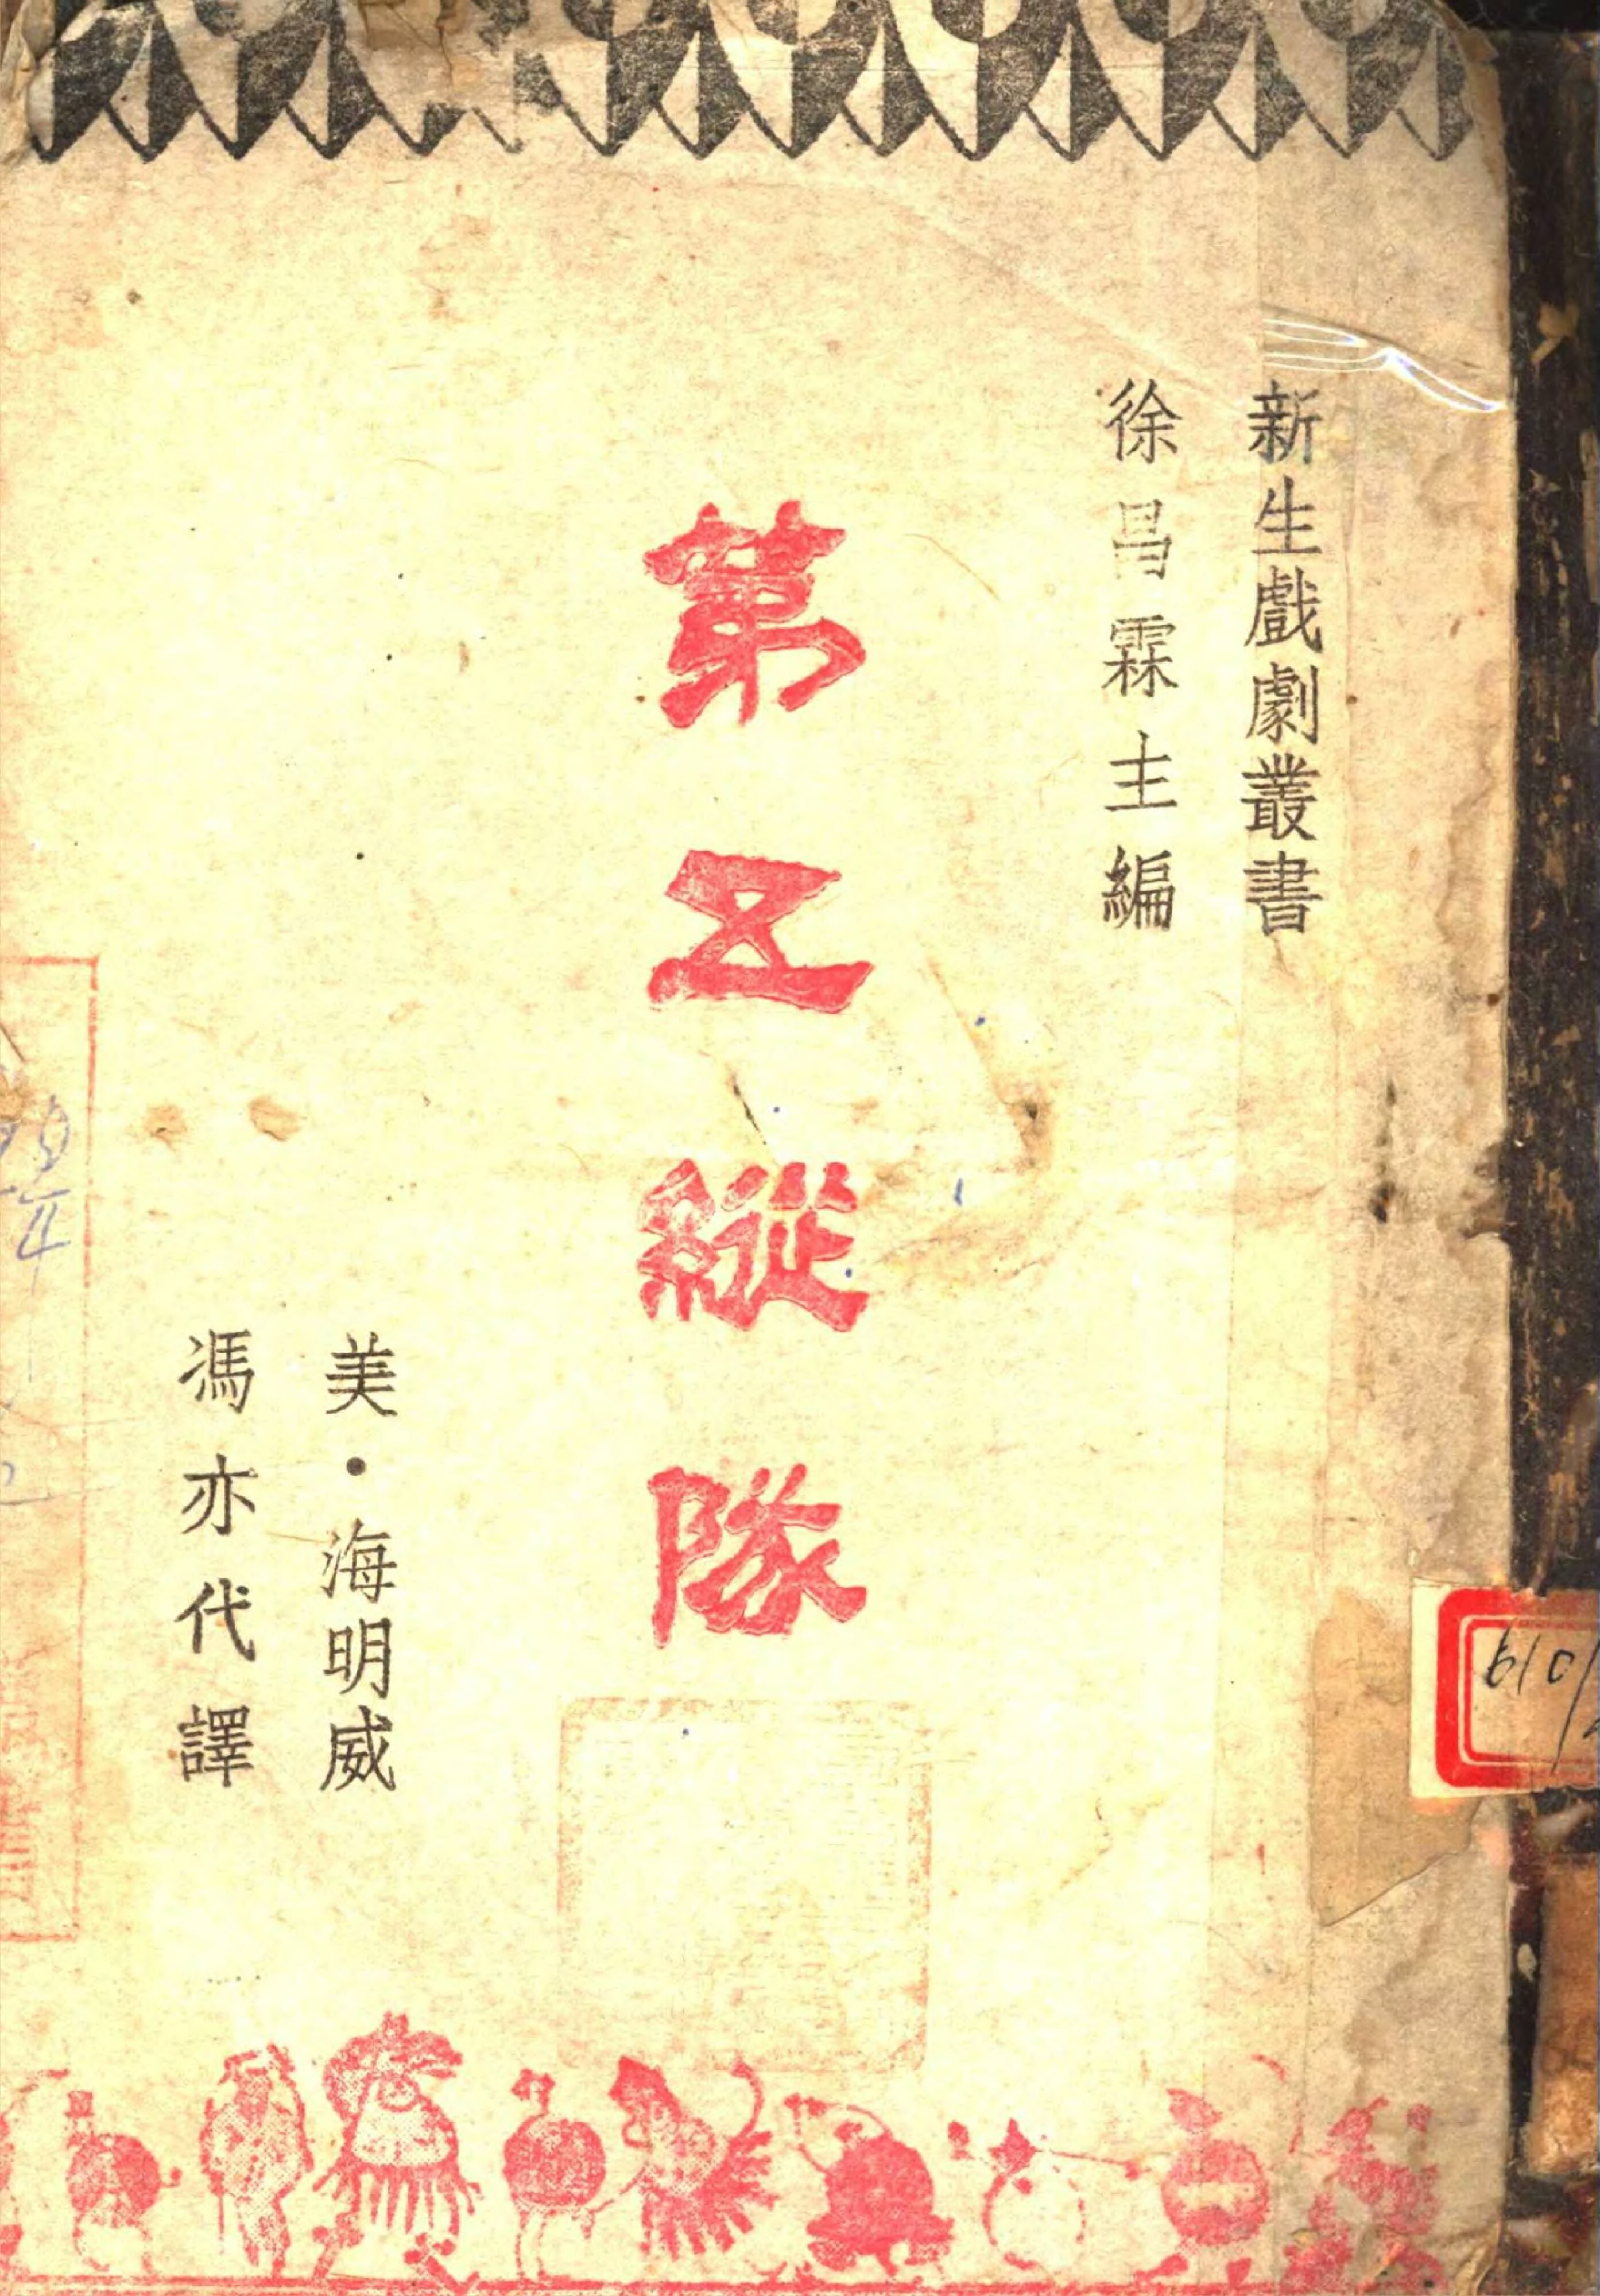 新生戲劇叢書
徐昌霖主編
第五縱隊
美·海明威
馮亦代譯
610/